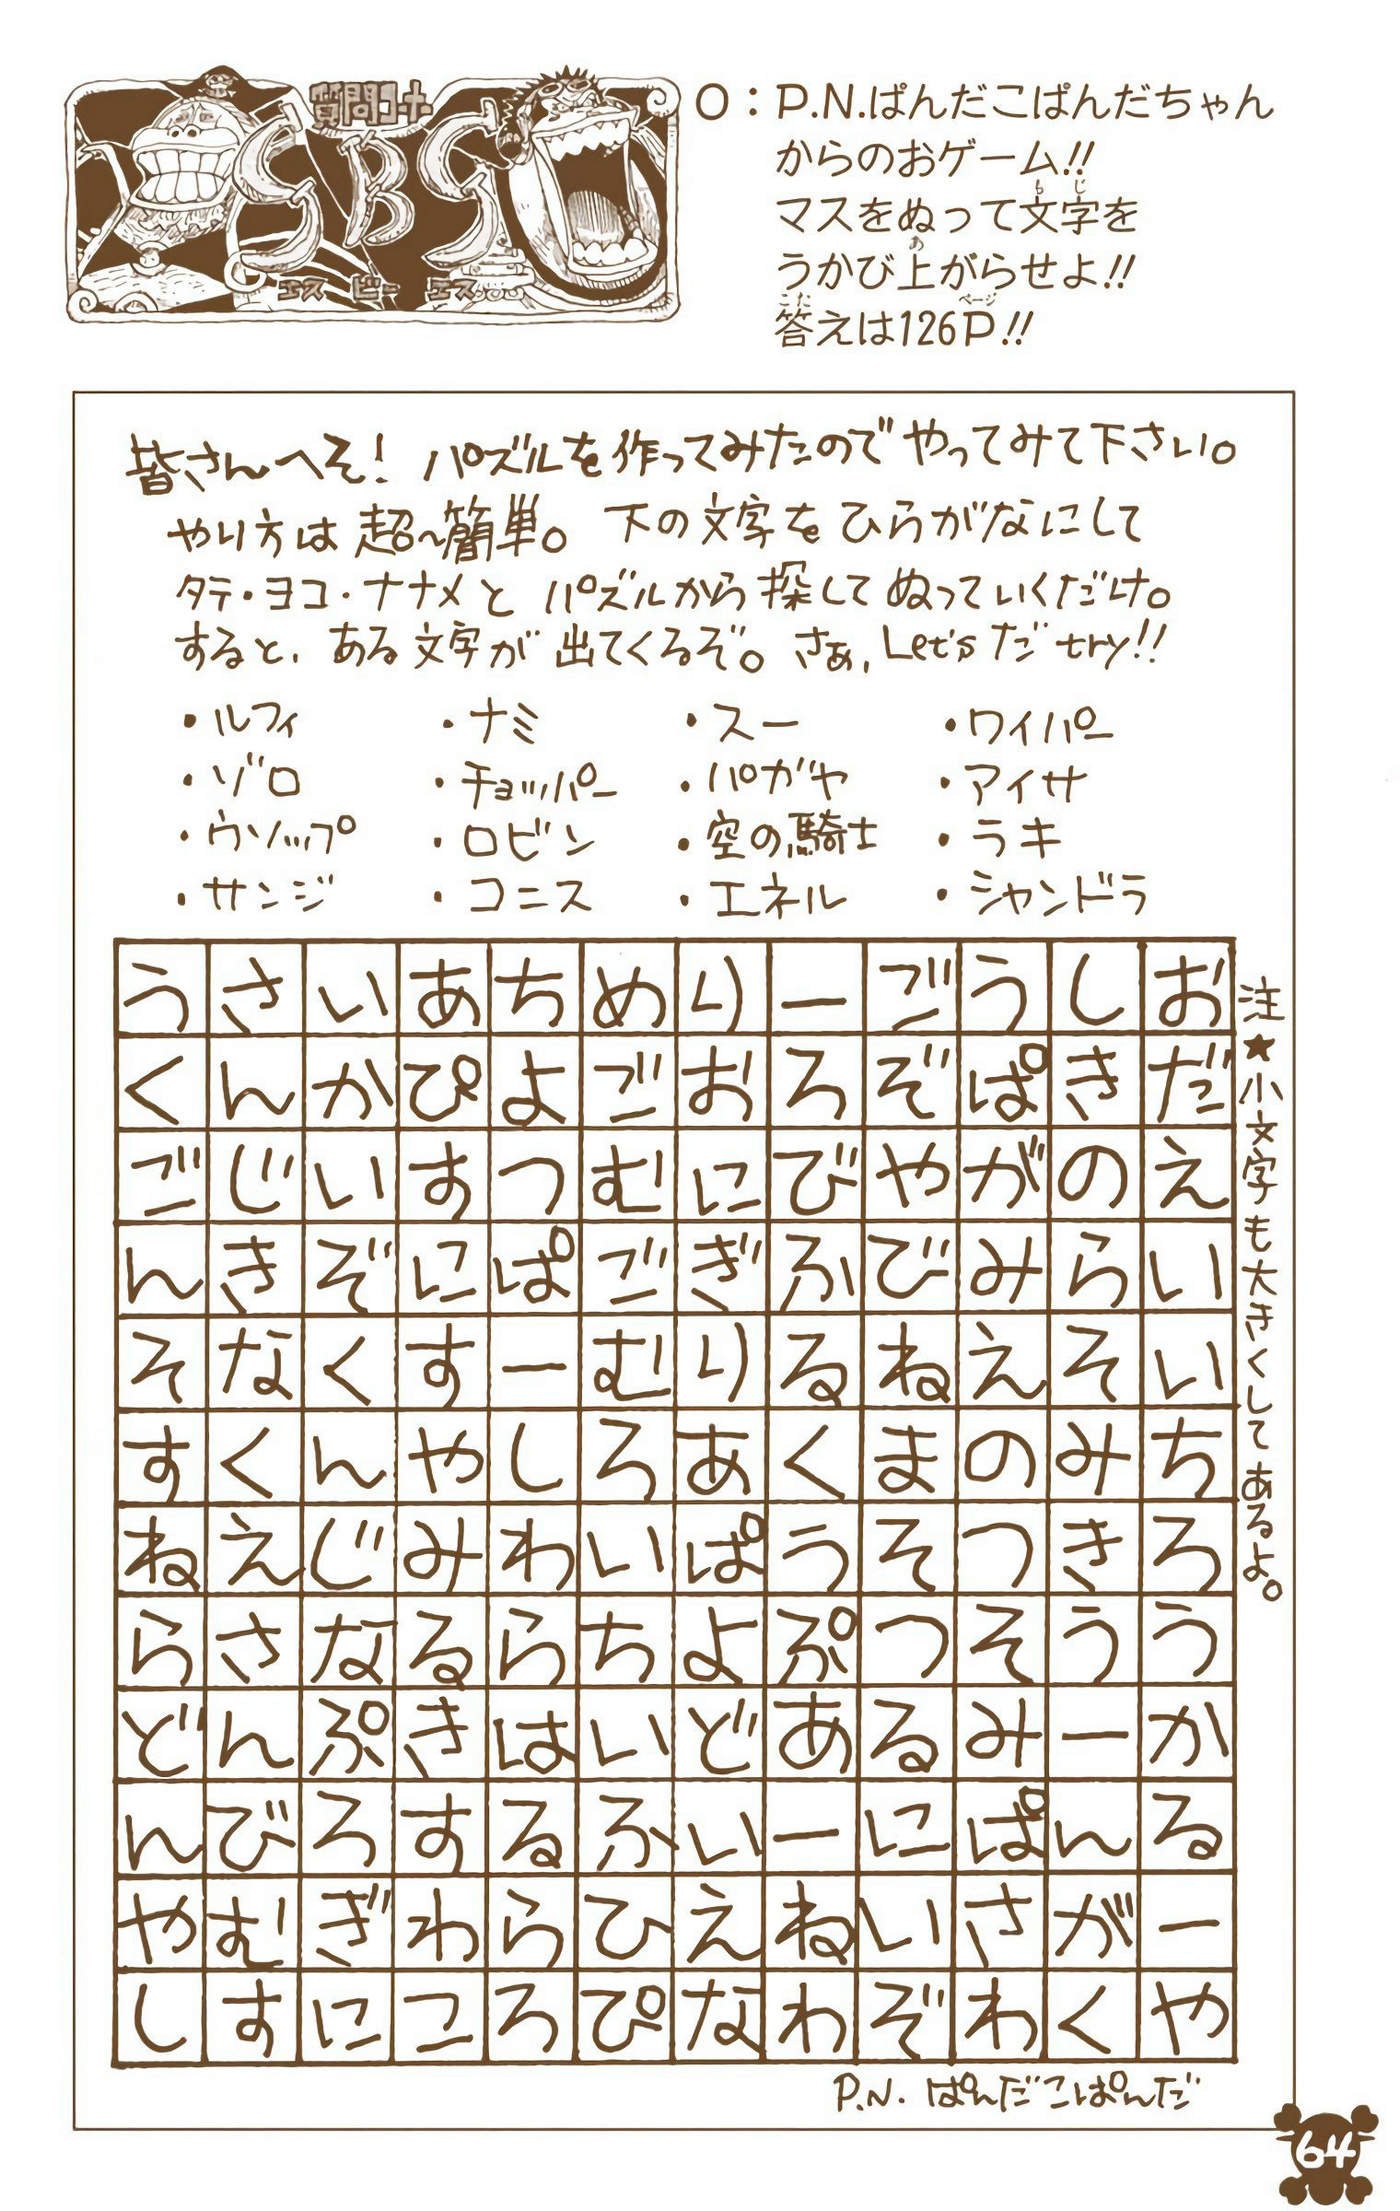 質問コーナー
SBS
エス ビー エス
O:P.N.ぱんだこぱんだちゃん
からのおゲーム!!
マスをぬって文字を
うかび上がらせよ!!
答えは126P!!
皆さんへそ! パズルを作ってみたのでやってみて下さい。
やり方は超~簡単。下の文字をひらがなにして
タテ・ヨコ・ナナメとパズルから探してぬっていくだけ。
すると、ある文字が出てくるぞ。さぁ、Let'sだtry!!
・ルフィ ・ナミ ・スー ・ワイパー
・ゾロ ・チョッパー ・パガヤ ・アイサ
・ウソップ ・ロビン ・空の騎士 ・ラキ
・サンジ ・コニス ・エネル ・シャンドラ
うさいあちめりーごうしお
くんかぴよごおろぞぱきだ
ごじいすつむにびやがのえ
んきぞにぱごぎふびみらい
そなくすーむりるねえそい
すくんやしろあくまのみち
ねえじみわいぱうそつきろ
らさなるらちよぷつそうう
どんぷきはいどあるみーか
んびろするふいーにぱんる
やむぎわらひえねいさがー
しすにころぴなわぞわくや
注★小文字も大きくしてあるよ。
P.N. ぱんだこぱんだ
64